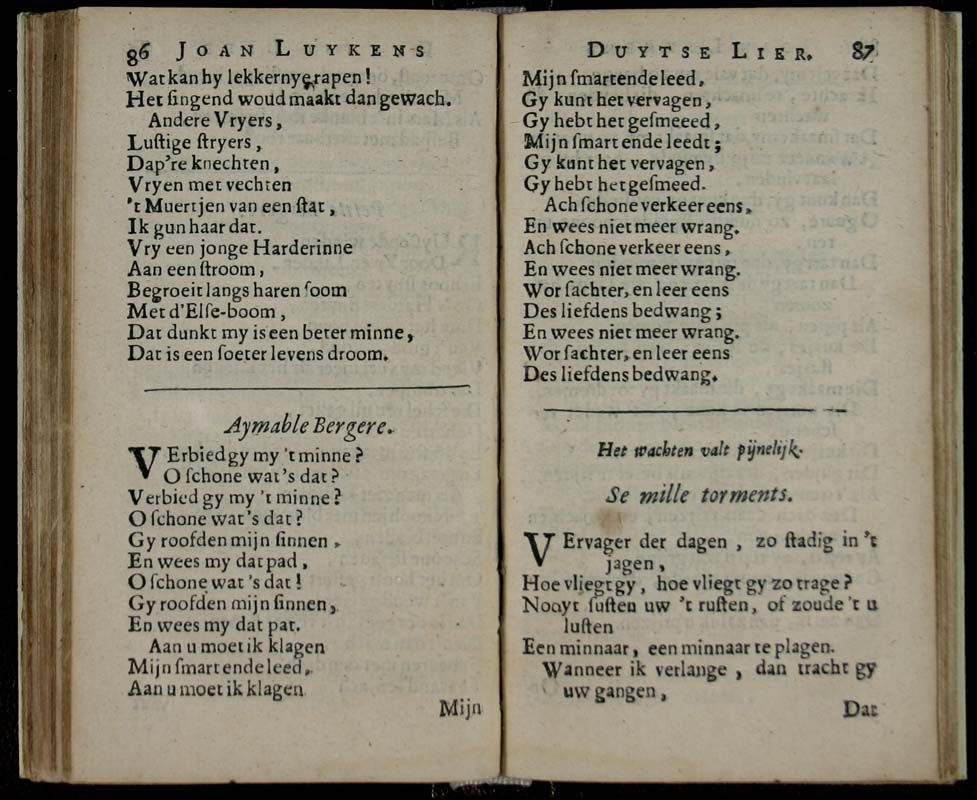 86 JOAN LUYKENS
Wat kan hy lekkernye rapen!
Het ſingend woud maakt dan gewach.
Andere Vryers,
Luſtige ſtryers,
Dap're knechten,
Vryen met vechten
't Muertjen van een ſtat,
Ik gun haar dat.
Vry een jonge Harderinne
Aan een ſtroom,
Begroeit langs haren ſoom
Met d'Elſe-boom,
Dat dunkt my is een beter minne,
Dat is een ſoeter levens droom.
Aymable Bergere.
VErbied gy my 't minne?
O ſchone wat's dat?
Verbied gy my 't minne?
O ſchone wat's dat?
Gy roofden mijn ſinnen,
En wees my dat pad,
O ſchone wat 's dat!
Gy roofden mijn ſinnen,
En wees my dat pat.
Aan u moet ik klagen
Mijn ſmart ende leed,
Aan u moet ik klagen
Mijn
DUYTSE LIER. 87
Mijn ſmart ende leed,
Gy kunt het vervagen,
Gy hebt het geſmeeed,
Mijn ſmart ende leedt;
Gy kunt het vervagen,
Gy hebt het geſmeed.
Ach ſchone verkeer eens,
En wees niet meer wrang.
Ach ſchone verkeer eens,
En wees niet meer wrang.
Wor ſachter, en leer eens
Des liefdens bedwang;
En wees niet meer wrang.
Wor ſachter, en leer eens
Des liefdens bedwang.
Het wachten valt pijnelijk.
Se mille torments.
VErvager der dagen, zo ſtadig in 't
jagen,
Hoe vliegt gy, hoe vliegt gy zo trage?
Nooyt ſuſten uw 't ruſten, of zoude 't u
luſten
Een minnaar, een minnaar te plagen.
Wanneer ik verlange, dan tracht gy
uw gangen,
Dat